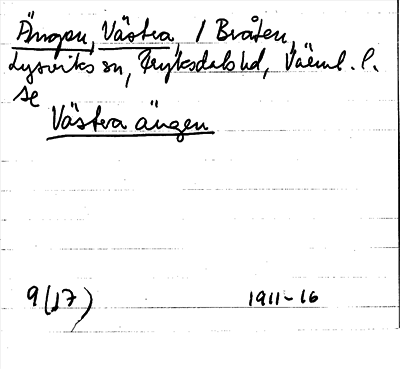 Ängen, Västra, / Bråten,
Lysviks sn, Fryksdals hd, Värml. l.
se
Västra ängen
9(17) 1911-16